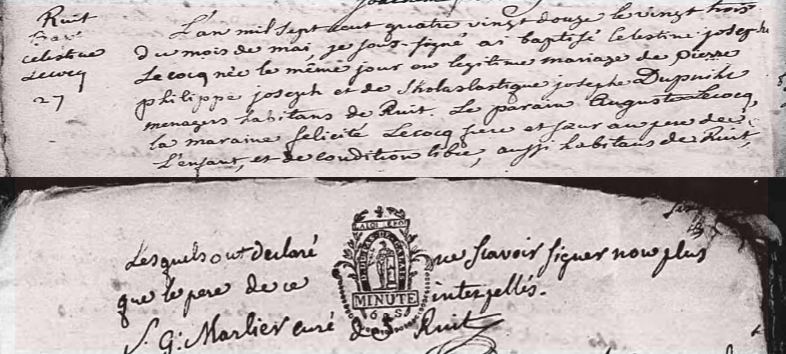 Ruit
Bap.
celestine
Lecocq
27
L'an mil sept cent quatre vingt douze le vingt trois
du mois de mai, je sous-signé ai baptisé Celestine joseph
Lecocq née le même jour en legitime mariage de Pierre
philippe joseph et de Skolastique josephe Dupuiht
menagers habitans de Ruit. Le parain Auguste Lecocq,
la maraine felicité Lecocq frere et sœur au pere de
L'enfant, et de condition libre, aussi habitans de Ruit,
Lesquels ont declaré ne scavoir signer non plus
que le pere de ce interpellés.
LA LOI LE ROI
MINUTE
6 S
S. G. Marlier curé de Ruit